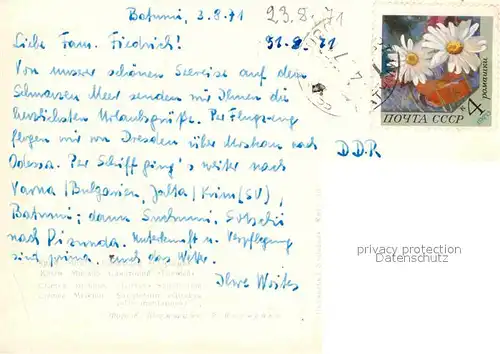 Batumi, 3.8.71
23.8.71
31.8.71
Liebe Fam. Friedrich!
Von unserer schönen Seereise auf dem
Schwarzen Meer senden wir Ihnen die
herzlichsten Urlaubsgrüße. Per Flugzeug
flogen wir von Dresden über Moskau nach
Odessa. Per Schiff ging's weiter nach
Varna (Bulgarien, Jalta/Krim (SU),
Batumi; dann Suchumi, Sotschi
nach Pizunda. Unterkunft u. Verpflegung
sind prima, auch das Wetter.
Ihre
DDR
ромашки
ПОЧТА СССР 4
privacy protection